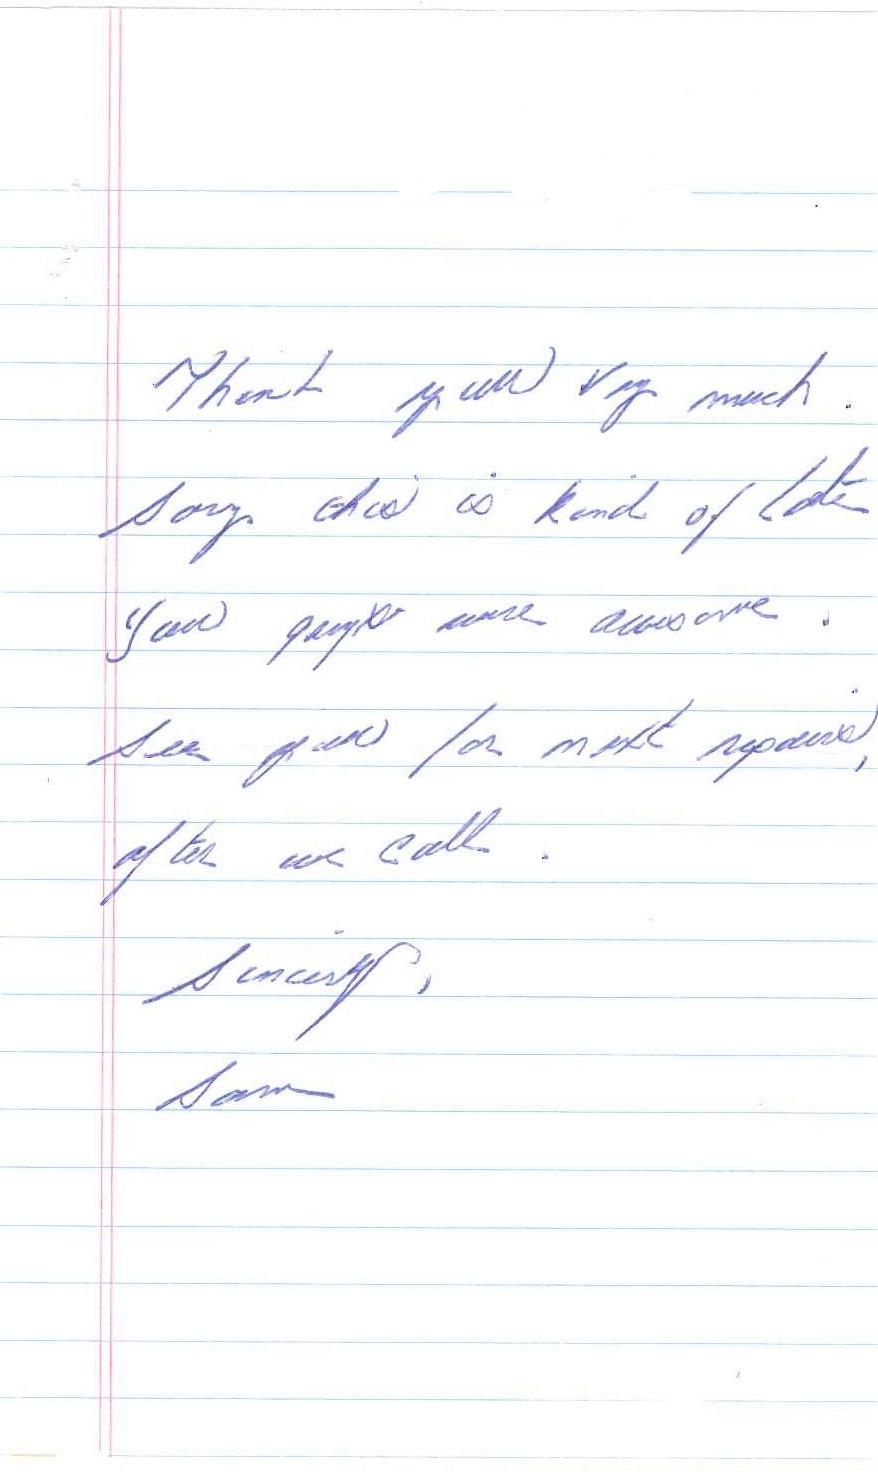 Thank you very much.
Sorry this is kind of late
You guys were awesome.
See you for next repairs,
after we call.
Sincerly,
Sam